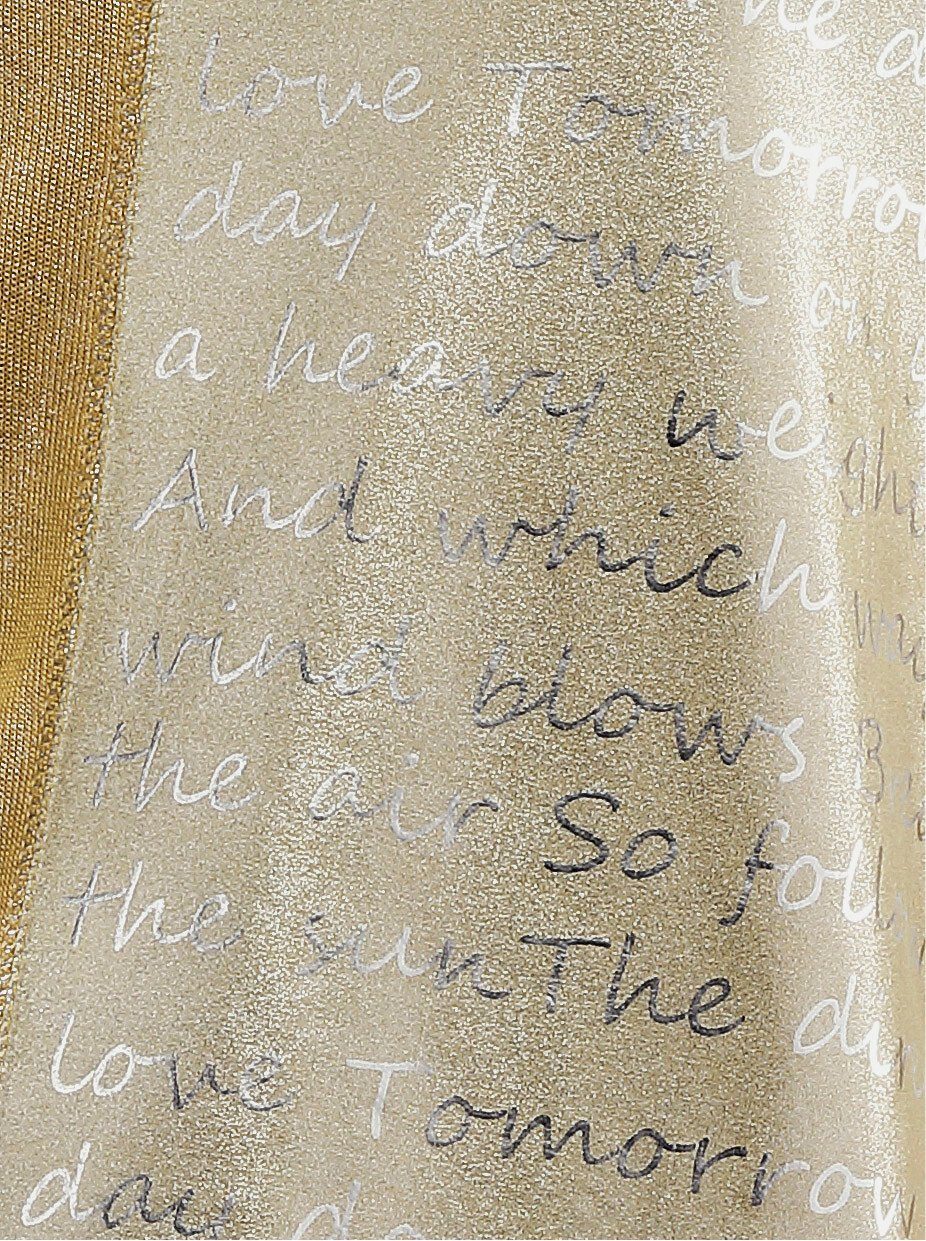 love Tomorrow
day down on
a heavy we
And which
wind blows
the air So foll
the sun The du
love Tomorrow
day do